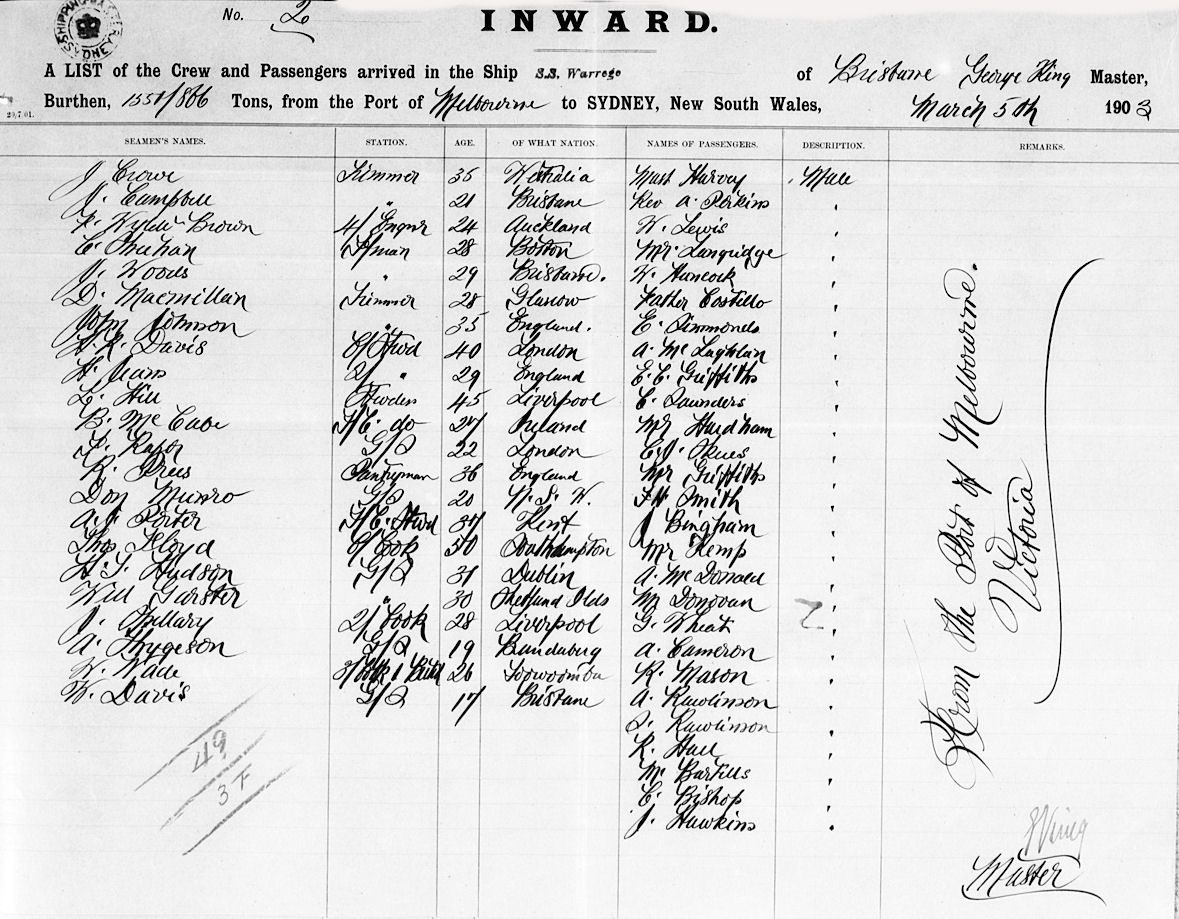 SHIPPING MASTER
SYDNEY
No. 2
INWARD.
A LIST of the Crew and Passengers arrived in the Ship S.S. Warrego of Brisbane George King Master,
Burthen, 1551/866 Tons, from the Port of Melbourne to SYDNEY, New South Wales, March 5th 1903
29.7.01.
SEAMEN'S NAMES. STATION. AGE. OF WHAT NATION. NAMES OF PASSENGERS. DESCRIPTION. REMARKS.
J. Crowe Trimmer 35 Nathalia Mast Harvey Male
J. Campbell " 21 Brisbane Rev A. Perkins "
F. Wylde Brown 4/ Engnr 24 Auckland W. Lewis "
C. F/man 28 Boston Mr. Langridge "
J. Woods " 29 Brisbane. W. Hancock "
D. Macmillan Trimmer 28 Glasgow Father Costillo "
John Johnson " 35 England. E. Simmonds "
Davis C/ Stwd 40 London A. McLaghlan "
2/ " 29 England E.E. Griffiths "
L. Hill Stwdess 45 Liverpool C. Saunders "
B. McCabe F/C. do 27 Ireland Mr Hardham "
G/S 22 London "
R. Pantryman 36 England Mr Griffiths "
Don Munro G/S 20 N.S.W. F.H. Smith "
A.J. Porter F/C. Stwd 37 Kent J Bingham "
Thos Floyd C/ Cook 50 Southampton Mr Kemp "
H.S. Hudson G/S 31 Dublin A. McDonald "
Will Garster " 30 Shetland Ilds Mr Donovan "
J. Spillary 2/ Cook 28 Liverpool G. Wheat "
A. Thygeson G/S 19 Bundaburg A. Cameron "
W. Wade 3/Cook & Butch 26 Toowoomba R. Mason "
W. Davis G/S 17 Brisbane A. Rawlinson "
S. Rawlinson "
R. Hall "
M. Bartills "
C. Bishop "
J. Hawkins "
49
3 F
From the Port of Melbourne.
Victoria
GKing
Master